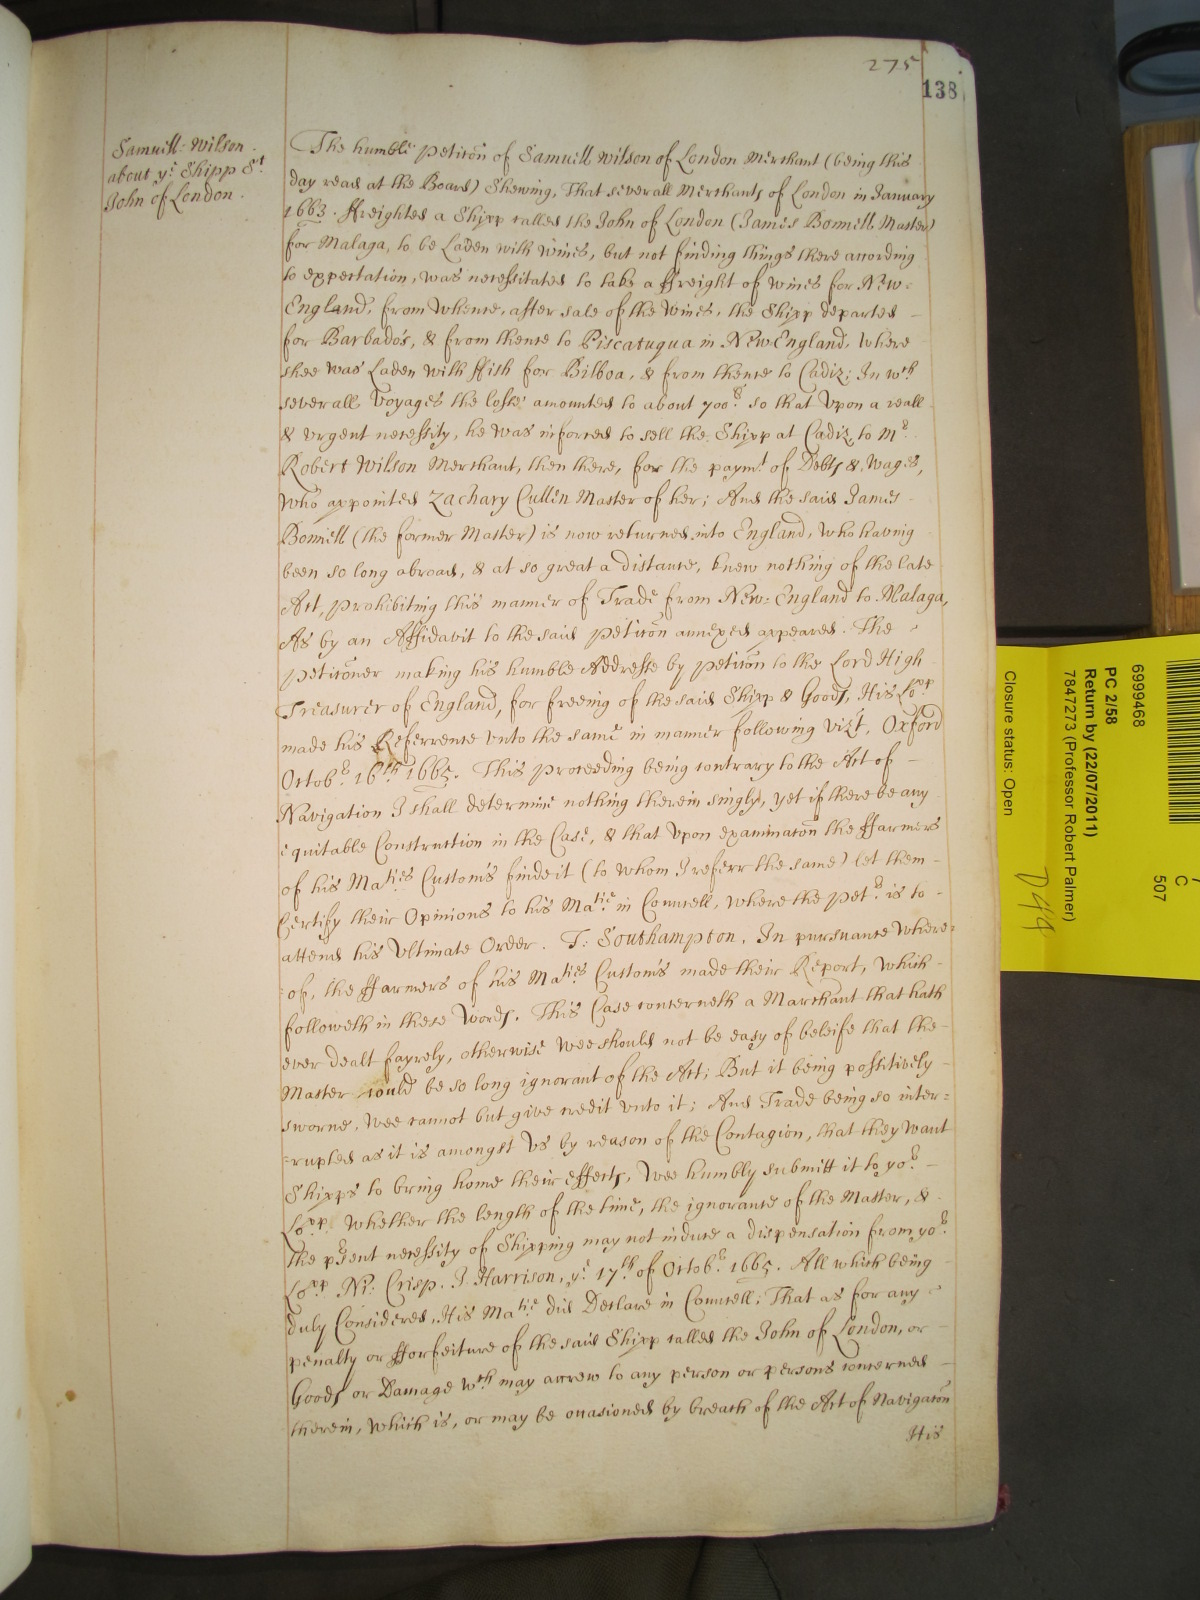 275
138
Samuell Wilson
about yᵉ Shipp Sᵗ
John of London.
The humble Petitiōn of Samuell Wilson of London Merchant (being this
day read at the Board) Shewing, That severall Merchants of London in January
1663. ffreighted a Shipp called the John of London (James Bonnell Master)
for Malaga, to be Laden with Wines, but not finding things there according
to expectation, was necessitated to take a ffreight of wines for New-
England, from whence, after sale of the Wines, the Shipp departed
for Barbados, & from thence to Piscatuqua in New England, Where
shee was Laden with ffish for Bilboa, & from thence to Cadiz; In wᶜʰ
severall Voyages the losse amounted to about 700ˡ so that Upon a reall
& urgent necessity, he was inforced to sell the Shipp at Cadiz, to Mʳ
Robert Wilson Merchant, then there, for the paymᵗ of Debts & Wages,
Who appointed Zachary Cullen Master of her; And the said James
Bonnell (the former Master) is now returned into England, Who having
been so long abroad, & at so great a distance, knew nothing of the late
Act, prohibiting this manner of Trade from New-England to Malaga,
As by an Affidavit to the said Petitōn annexed appeared. The
Petitōner making his humble Addresse by Petitōn to the Lord High
Treasurer of England, for freeing of the said Shipp & Goods, His Loᵖᵖ
made his Referrence unto the same in manner following Vizᵗ. Oxford
Octobʳ 16ᵗʰ 1665. This proceeding being contrary to the Act of
Navigation I shall determine nothing therein singly, yet if there be any
equitable Construction in the Case, & that upon examinatōn the ffarmers
of his Maᵗⁱᵉˢ Customs finde it (to whom I referr the same) let them
Certify their Opinions to his Maᵗⁱᵉ in Councell, Where the Petʳ is to
attend his Ultimate Order. T: Southampton. In pursuance Where-
-of, the ffarmers of his Maᵗⁱᵉˢ Customs made their Report, Which
followeth in these Words. This Case concerneth a Marchant that hath
ever dealt fayrely, otherwise Wee should not be easy of beleife that the
Master could be so long ignorant of the Act; But it being possitively
sworne, Wee cannot but give credit unto it; And Trade being so inter=
=rupted as it is amongst Us by reason of the Contagion, that they want
Shipps to bring home their effects, Wee humbly submitt it to yoʳ
Loᵖᵖ. Whether the length of the time, the ignorance of the Master, &
the pʳsent necessity of Shipping may not induce a dispensation from yoʳ
Loᵖᵖ Ni: Crisp. J. Harrison, yᵉ 17ᵗʰ of Octobʳ 1665. All which being
duly Considered, His Maᵗⁱᵉ did Declare in Councell; That as for any
penalty or fforfeiture of the said Shipp called the John of London, or
Goods or Damage wᶜʰ may accrew to any person or persons concerned
therein, Which is, or may be occasioned by breach of the Act of Navigatōn
His
6999468
PC 2/58
Return by (22/07/2011)
7847273 (Professor Robert Palmer)
Closure status: Open
C
507